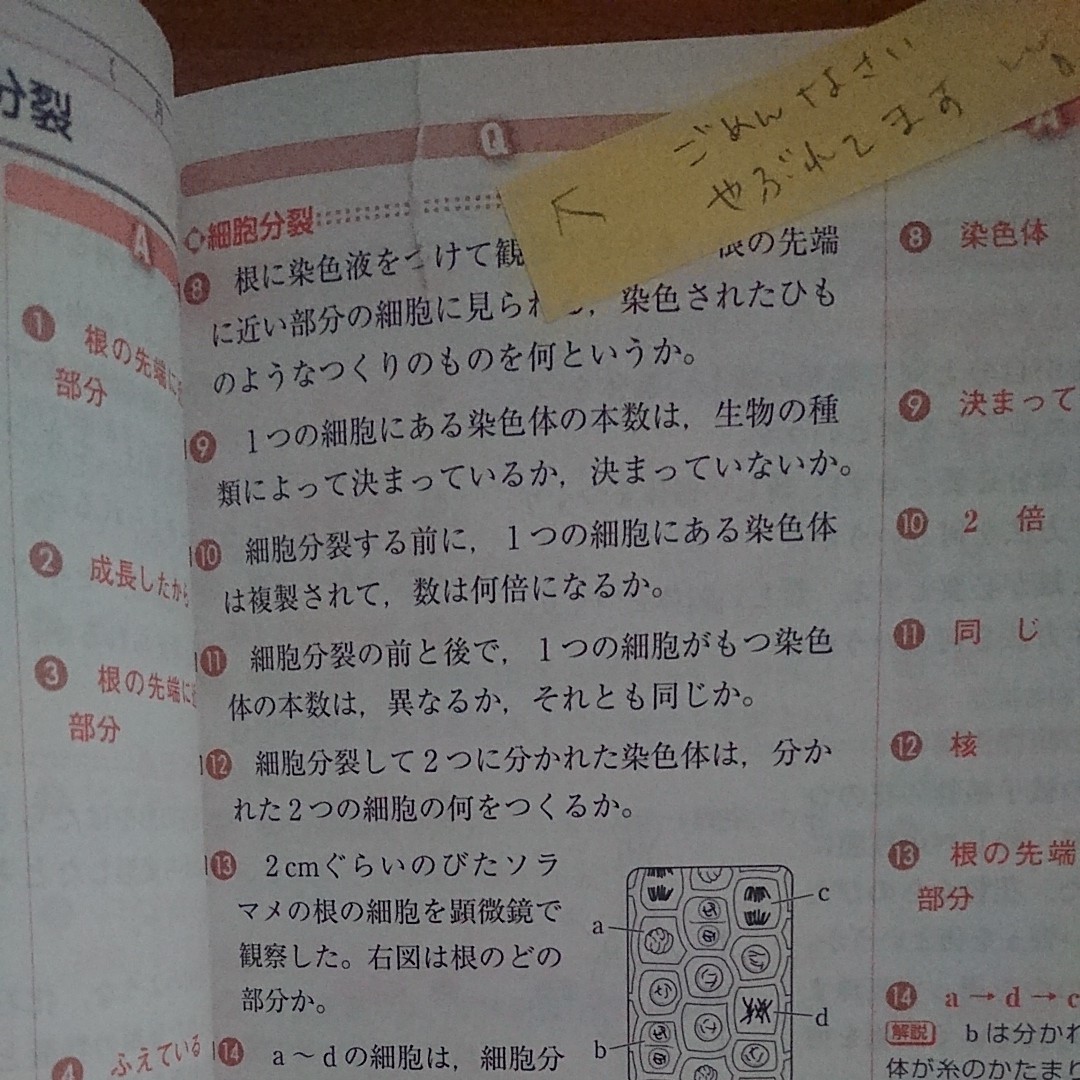 分裂
A
1 根の先端に
部分
2 成長したから
3 根の先端に近
部分
4 ふえている
Q
ごめんなさい
やぶれてます
↑
◇細胞分裂
8 根に染色液をつけて観 根の先端
に近い部分の細胞に見られる，染色されたひも
のようなつくりのものを何というか。
9 1つの細胞にある染色体の本数は，生物の種
類によって決まっているか，決まっていないか。
10 細胞分裂する前に，1つの細胞にある染色体
は複製されて，数は何倍になるか。
11 細胞分裂の前と後で，1つの細胞がもつ染色
体の本数は，異なるか，それとも同じか。
12 細胞分裂して2つに分かれた染色体は，分か
れた2つの細胞の何をつくるか。
13 2cmぐらいのびたソラ
マメの根の細胞を顕微鏡で
観察した。右図は根のどの
部分か。
14 a～dの細胞は，細胞分
a
b
c
d
A
8 染色体
9 決まって
10 2 倍
11 同 じ
12 核
13 根の先端
部分
14 a→d→c
解説 bは分かれ
体が糸のかたまり